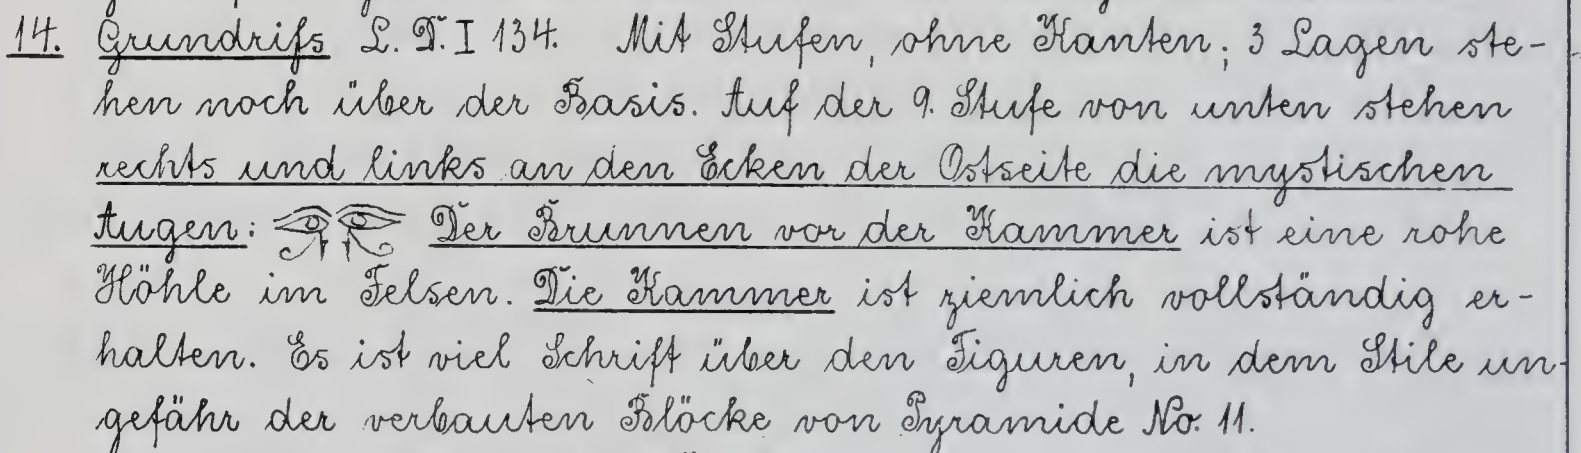 14. Grundriſs L. D. I 134. Mit Stufen, ohne Kanten; 3 Lagen ste-
hen noch über der Basis. Auf der 9. Stufe von unten stehen
rechts und links an den Ecken der Ostseite die mystischen
Augen: 𓂀𓂀 Der Brunnen vor der Kammer ist eine rohe
Höhle im Felsen. Die Kammer ist ziemlich vollständig er-
halten. Es ist viel Schrift über den Figuren, in dem Stile un-
gefähr der verbauten Blöcke von Pyramide No. 11.